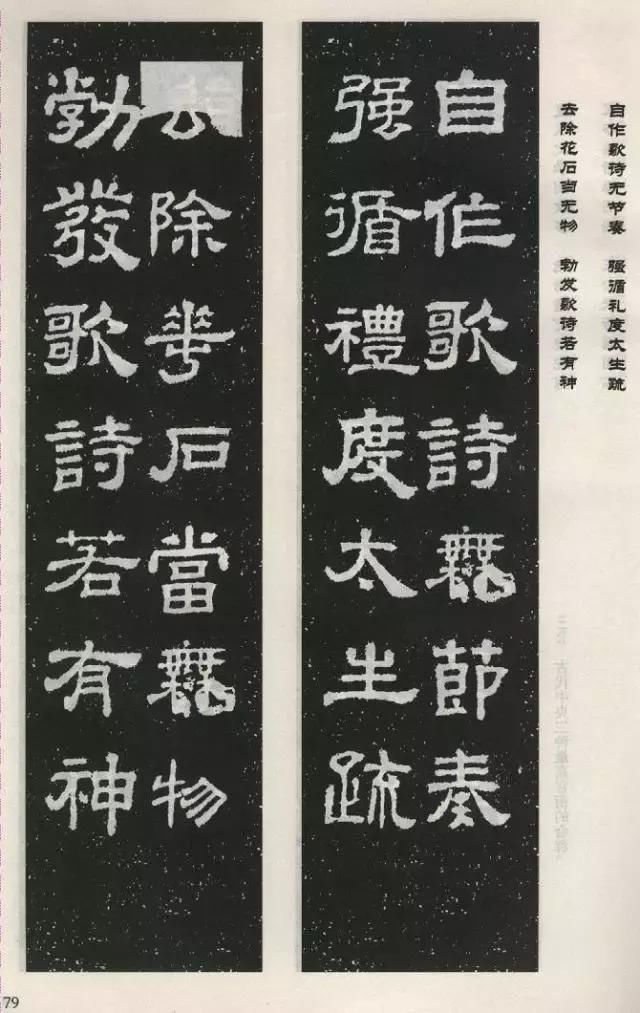 自作歌诗无节奏　强循礼度太生疏
去除花石当无物　勃发歌诗若有神
自作歌詩無節奏
强循禮度太生疏
去除華石當無物
勃發歌詩若有神
79